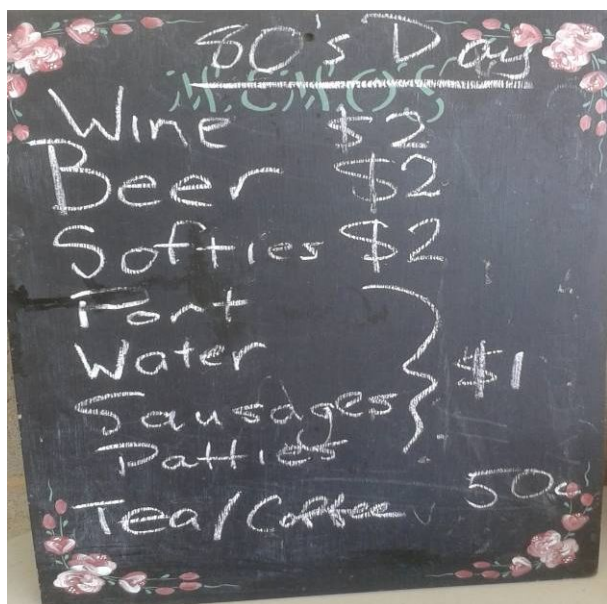 80's Day
MEMO'S
Wine $2
Beer $2
Softies $2
Port
Water
$1
Sausages
Patties
Tea/Coffee 50c